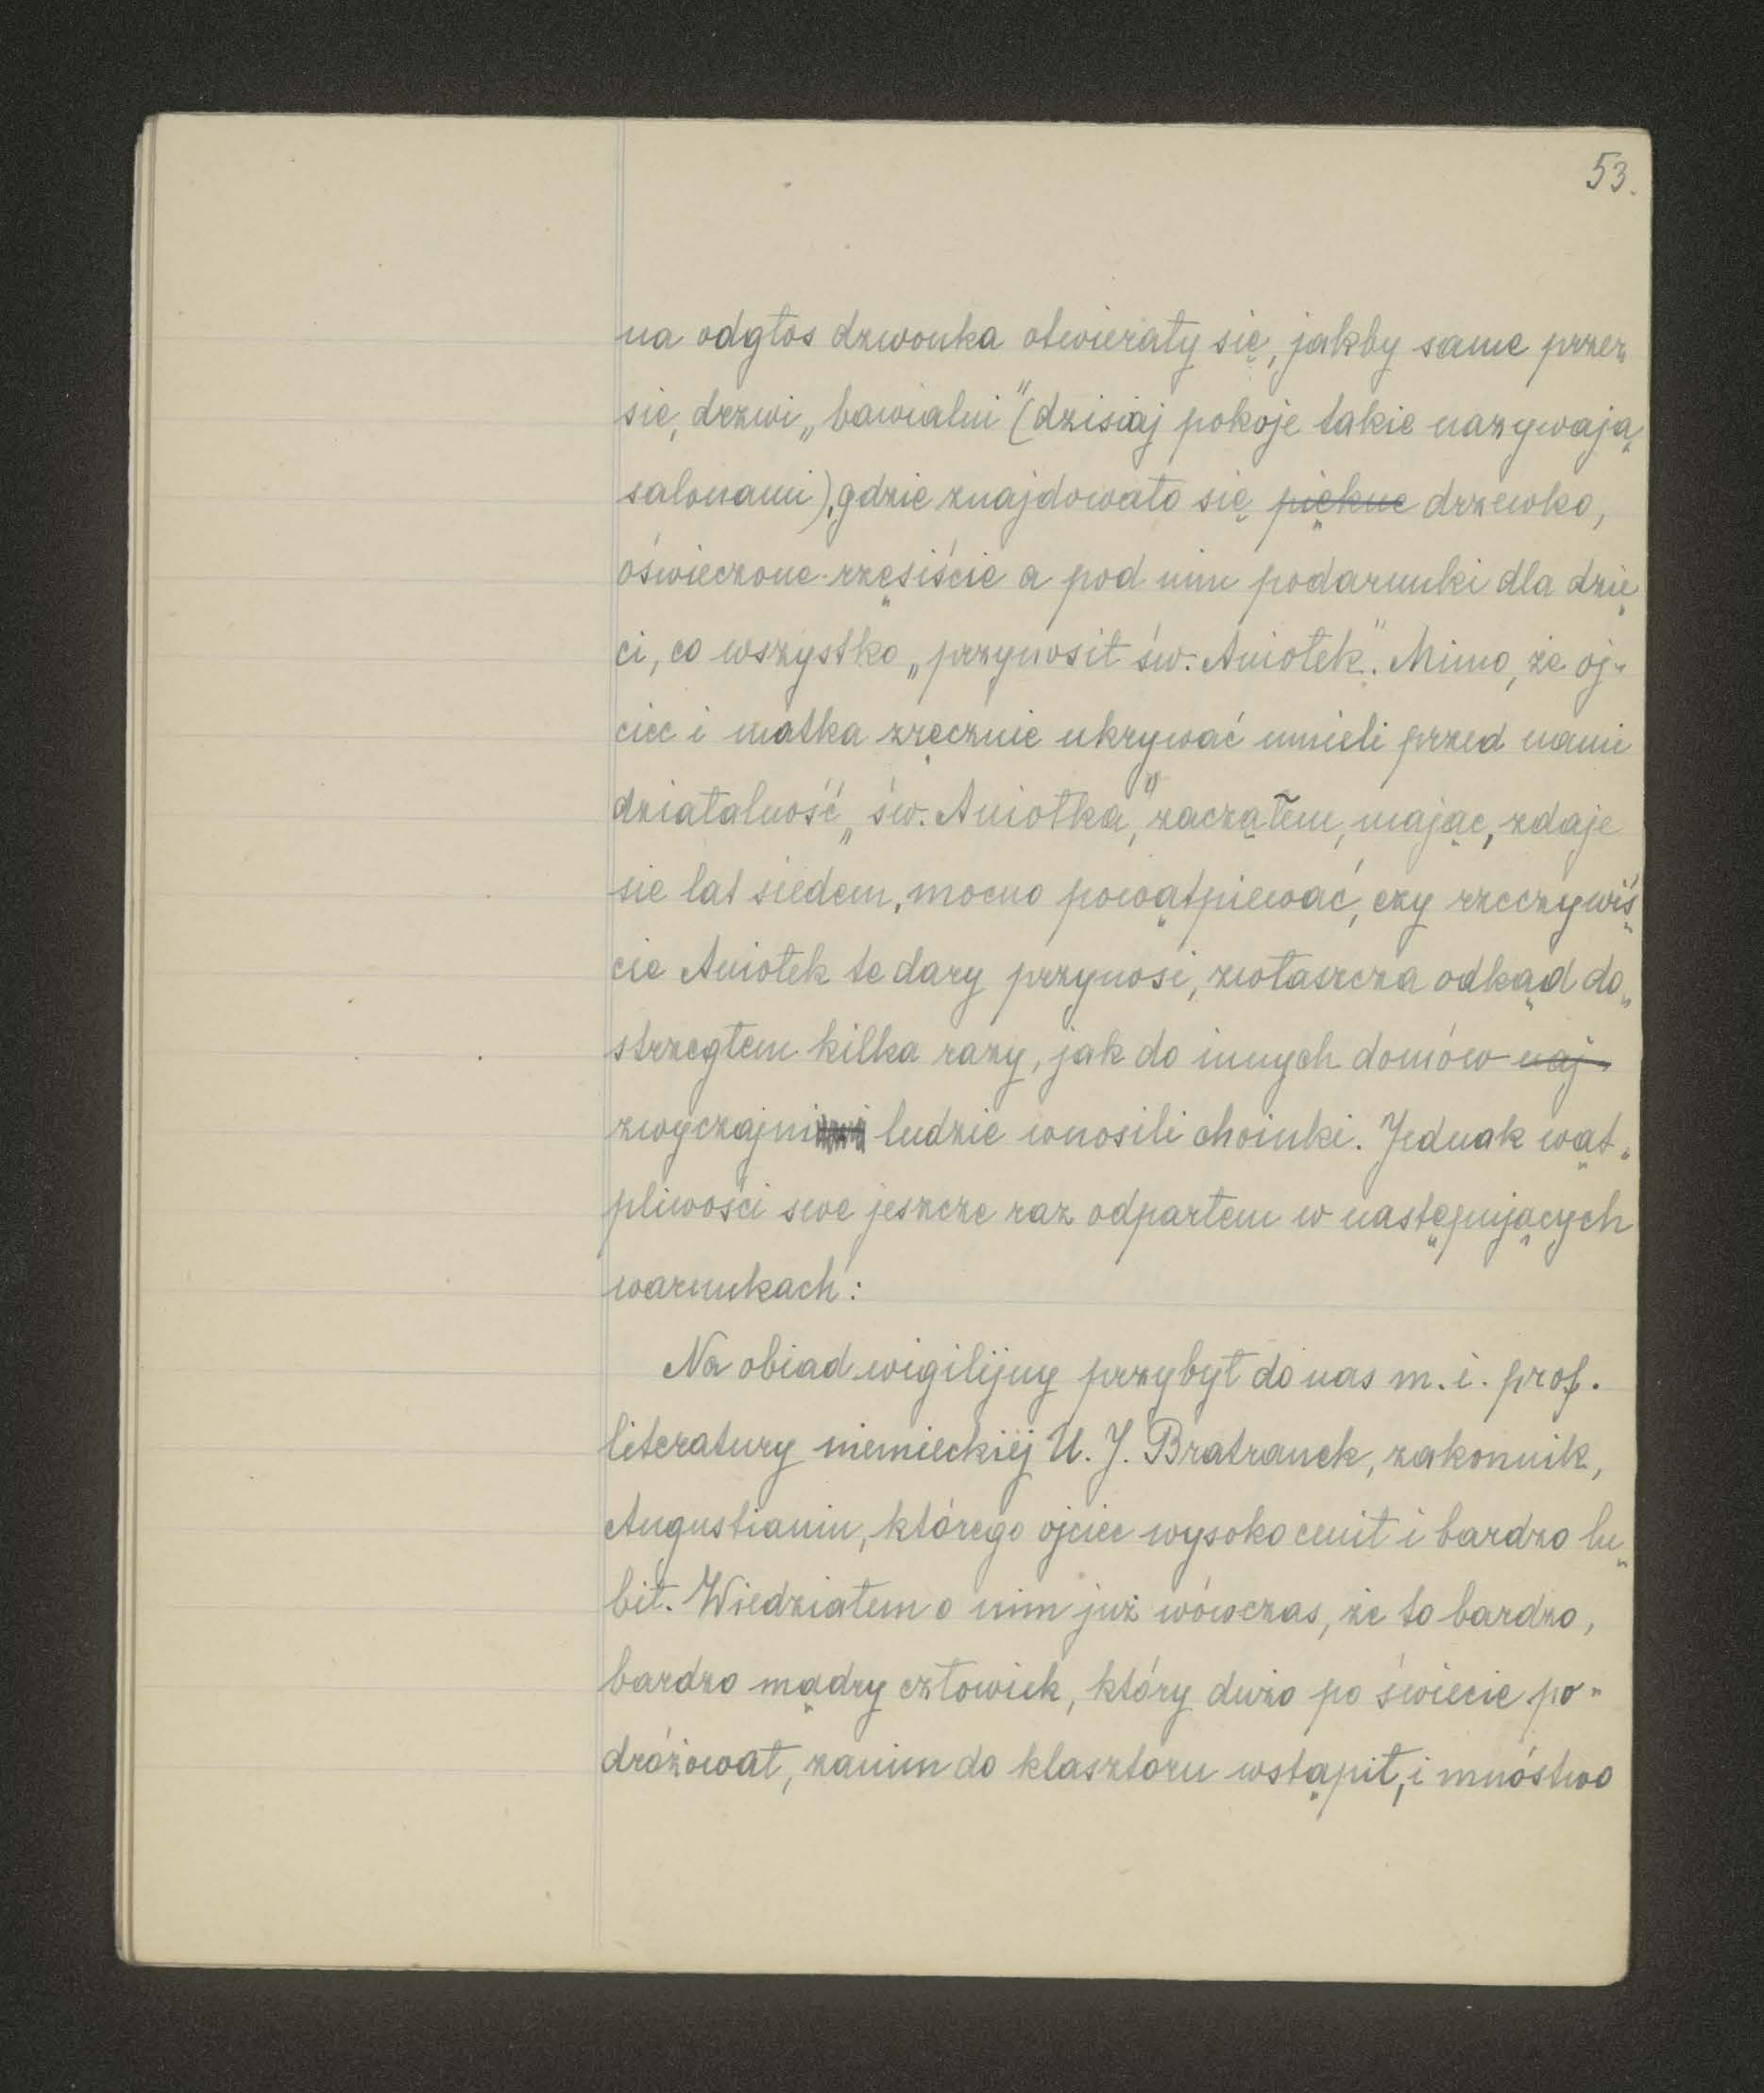 53.
na odgłos dzwonka otwierały się, jakby same przez
się, drzwi „bawialni" (dzisiaj pokoje takie nazywają
salonami), gdzie znajdowało się piękne drzewko,
oświeczone rzęsiście a pod nim podarunki dla dzie„
ci, co wszystko „przynosił św. Aniołek". Mimo, że oj-
ciec i matka zręcznie ukrywać umieli przed nami
działalność „św. Aniołka", zacząłem, mając, zdaje
się lat siedem, mocno powątpiewać, czy rzeczywiś„
cie Aniołek te dary przynosi, zwłaszcza odkąd do„
strzegłem kilka razy, jak do innych domów naj-
zwyczajni ludzie wnosili choinki. Jednak wąt„
pliwości swe jeszcze raz odparłem w następujących
warunkach:
Na obiad wigilijny przybył do nas m. i. prof.
literatury niemieckiej U. J. Bratranek, zakonnik,
Augustianin, którego ojciec wysoko cenił i bardzo lu„
bił. Wiedziałem o nim już wówczas, że to bardzo,
bardzo mądry człowiek, który dużo po świecie po„
dróżował, zanim do klasztoru wstąpił, i mnóstwo